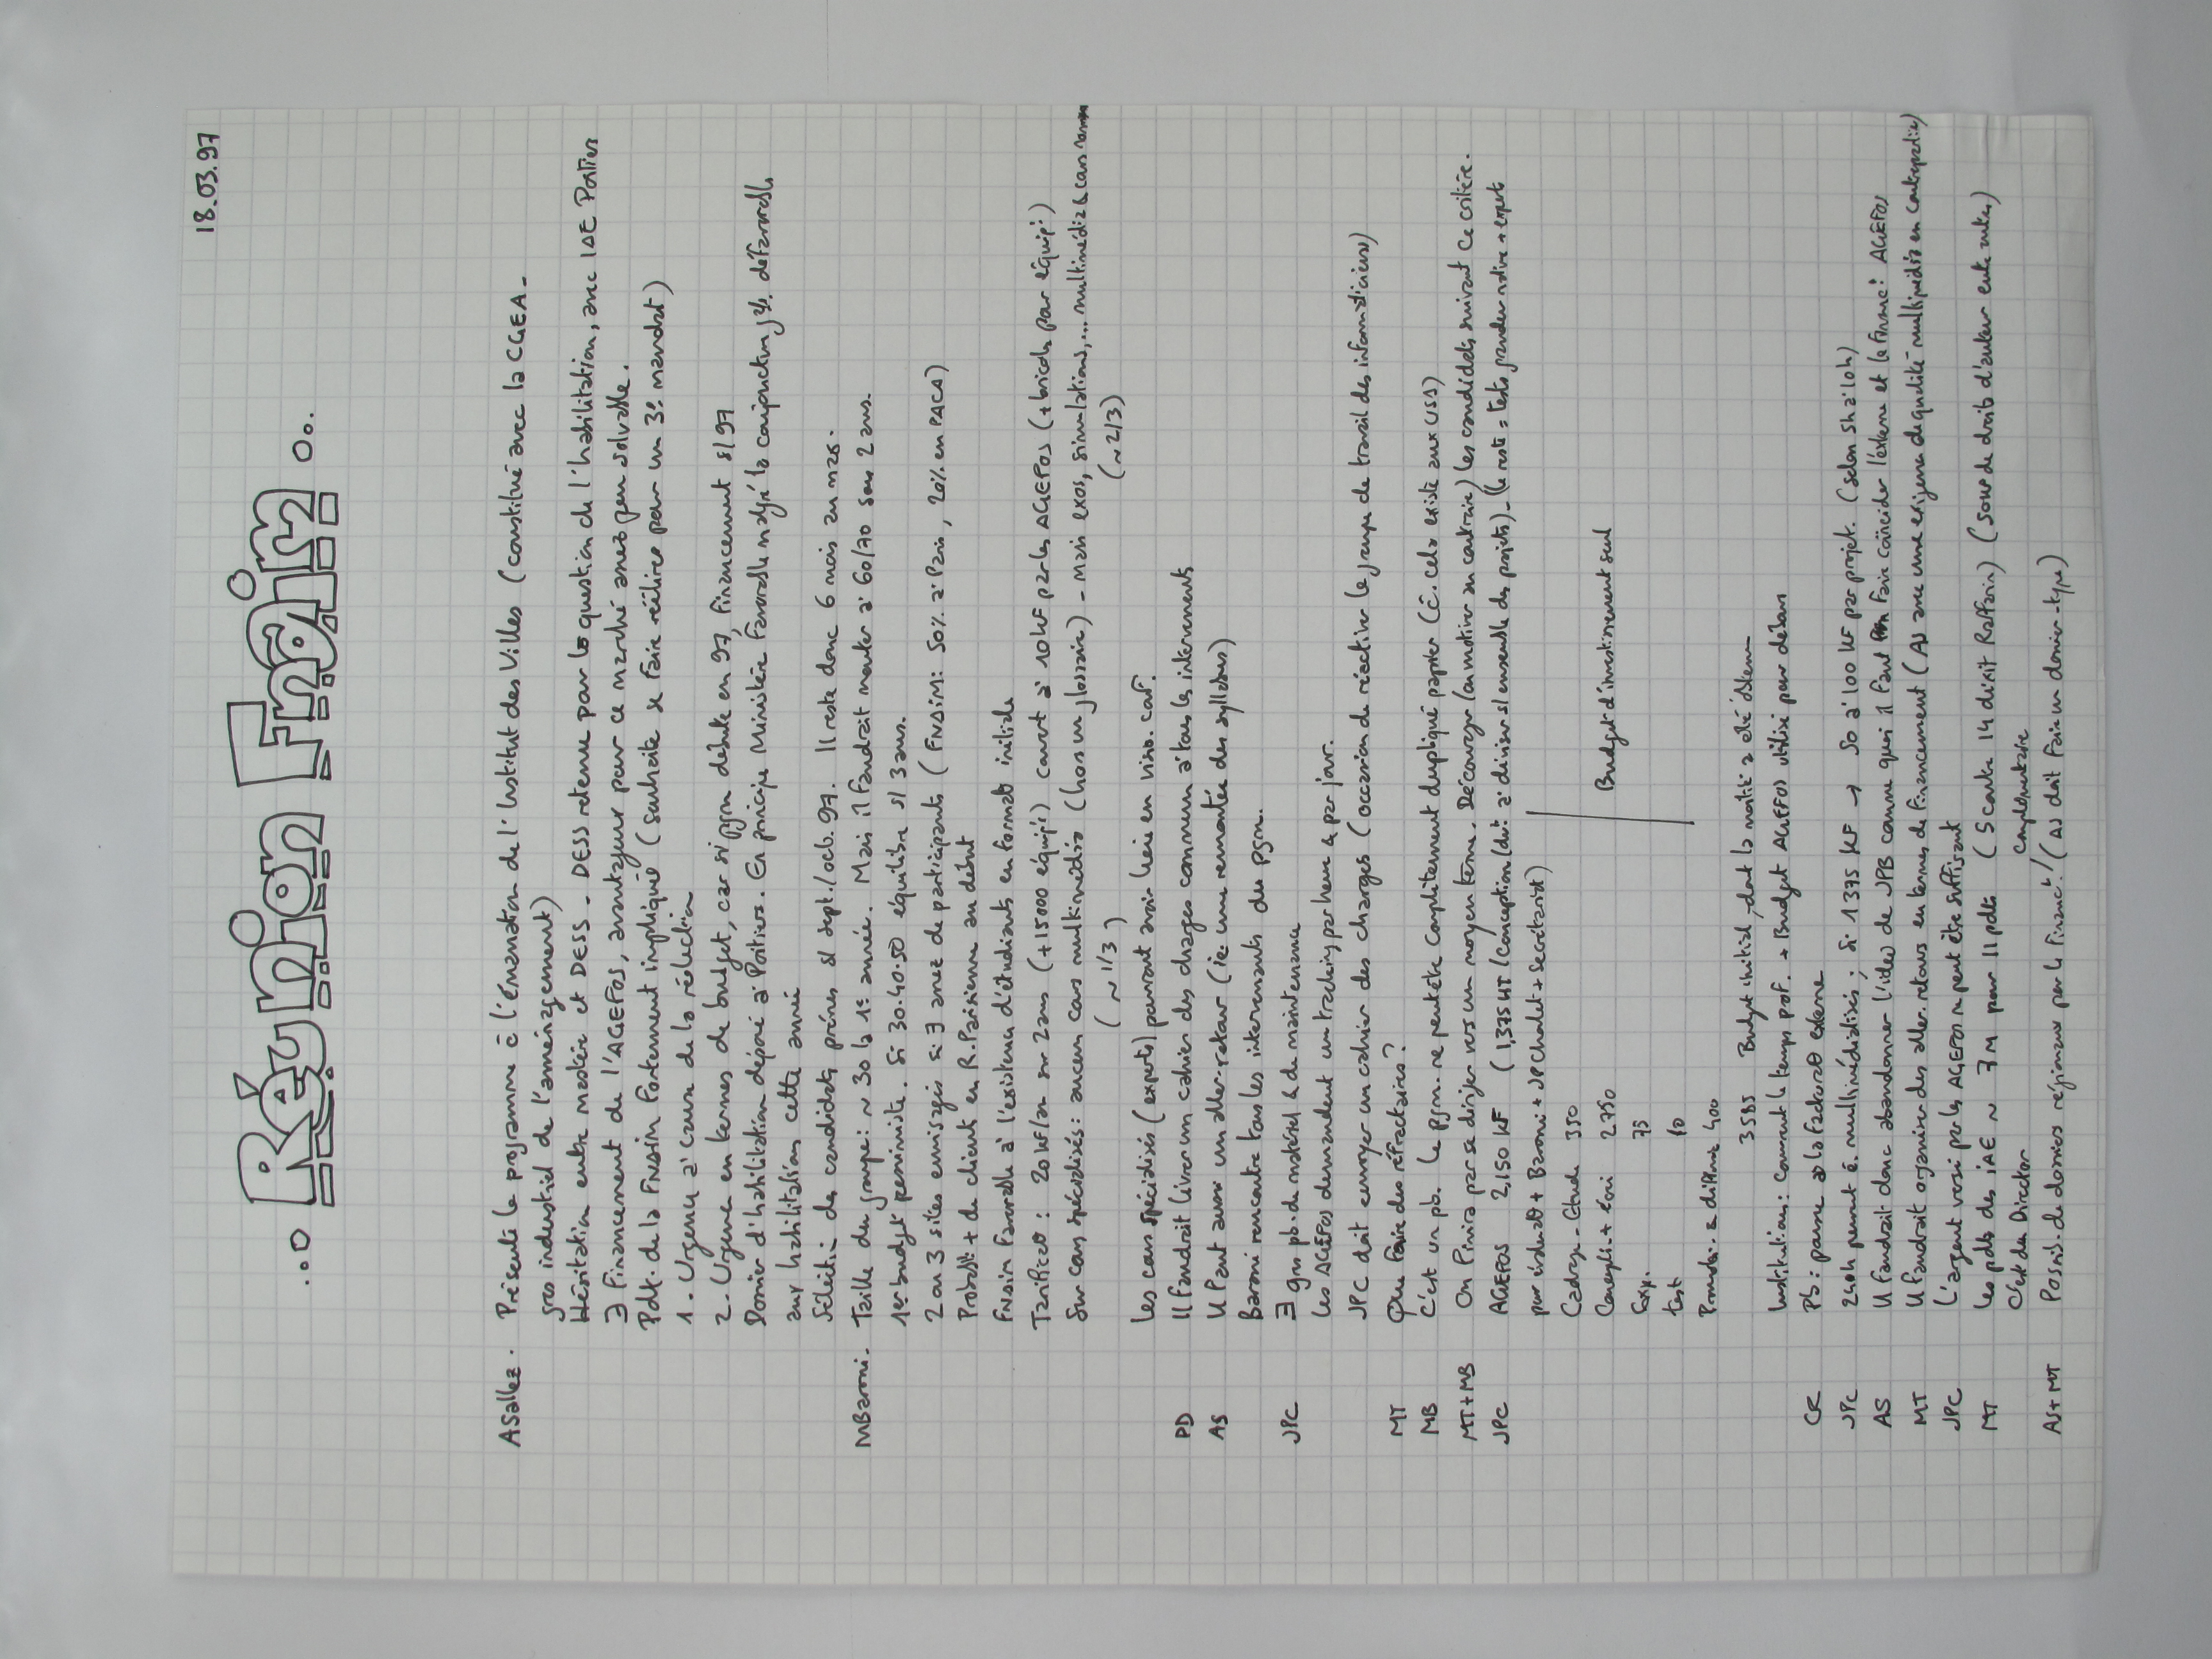 18.03.97
...o Réunion Fnaim oo.
ASallez. Présente le programme à l'émanation de l'Institut des Villes (constitué avec la CGEA -
gros industriel de l'aménagement)
Hésitation entre mastère et DESS - DESS retenu pour la question de l'habilitation, avec IAE Poitiers
∃ financement de l'AGEFOS, avantageux pour ce marché assez peu solvable.
Pdt. de la FNAIM fortement impliqué (souhaite se faire réélire pour un 3e mandat)
1 - Urgence à cause de la réélection
2 - Urgence en termes de budget, car si pgm débute en 97, financement s/97
Dossier d'habilitation déposé à Poitiers. En principe Ministère favorable malgré la conjoncture défavorable
aux habilitations cette année
Sélection des candidats prévue s/ sept./oct. 97. Il reste donc 6 mois au max.
MBaroni. Taille du groupe: ~ 30 la 1e année. Mais il faudrait monter à 60/70 sous 2 ans.
1er budget pessimiste. Si 30.40.50 équilibre s/ 3 ans.
2 ou 3 sites envisagés si ∃ assez de participants (FNAIM: 50% à Paris, 20% en PACA)
Probablt + de clients en R. Parisienne au début
Fnaim favorable à l'existence d'étudiants en format initiale
Tarificat°: 20 kF/an sur 2 ans (+15000 équipt) couvert à 10 kF par les AGEFOS (+ bricole par équipt)
Sur cas spécialisés: aucun cas multimédia (hors un glossaire) - Mais exos, simulations, ... multimédia & cas
(~ 1/3) (~ 2/3)
Les cas spécialisés (experts) pourront avoir lieu en visio. conf.
PD Il faudrait livrer un cahier des charges commun à tous les intervenants
AS Il faut aussi un aller-retour (ie: une remontée des syllabus)
Baroni rencontre tous les intervenants du pgm.
JPC ∃ gros pb. de matériel & de maintenance
Les AGEFOS demandent un tracking par heure & par jour.
JPC doit envoyer un cahier des charges (occasion de réactiver le groupe de travail des informaticiens)
MT Que faire des réfractaires?
MB C'est un pb. Le pgm. ne peut être complètement dupliqué papier (cela existe aux USA)
MT+MB On finira par se diriger vers un moyen terme. Décourager (ou motiver au contraire) les candidats suivant ce critère.
JPC AGEFOS 2,150 kF (1,375 HT / conception (dvt: à diviser s/ ensemble des projets) - (le reste = tests grandeur nature + expert
pour évaluat° + Baroni + JPChalet + secrétariat)
Cadrage - Etude 350
Concepti + réri 2.750
Exp. 75
test 10
Promotion & diffusion 400
Budget d'investissement seul
3585 Budget initial, dont la moitié a été obtenu
Institutions: couvrent le temps prof. + Budget AGEFOS utilisé pour dehors
CR Pb: passe à la facturat° externe
JPC 240h peuvent ê. multimédiatisés; si 1375 kF → 50 à 100 kF par projet. (selon 5h à 10h)
AS Il faudrait donc abandonner l'idée de JPB comme quoi il faut faire coïncider l'externe et le financt: AGEFOS
MT Il faudrait organiser des aller-retours en termes de financement (AS avec une exigence de qualité multimédia en contrepartie)
JPC L'argent versé par les AGEFOS ne peut être suffisant
MT Les pdts des IAE ~ 7 M pour 11 pdts (5 contre 14 disait Raffarin) (Soucis de droits d'auteur entre autres)
C'est du Director complémentaire
AS+MT Possib. de dossiers régionaux par le financt. / (AS doit faire un dossier-type)